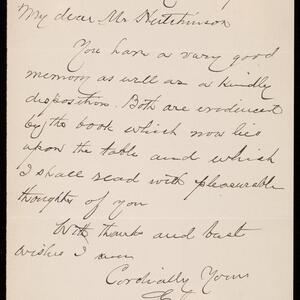 My dear Mr Hutchinson
You have a very good
memory as well as a kindly
disposition. Both are evidenced
by the book which now lies
upon the table and which
I shall read with pleasurable
thoughts of you
With thanks and best
wishes I am
Cordially Yours